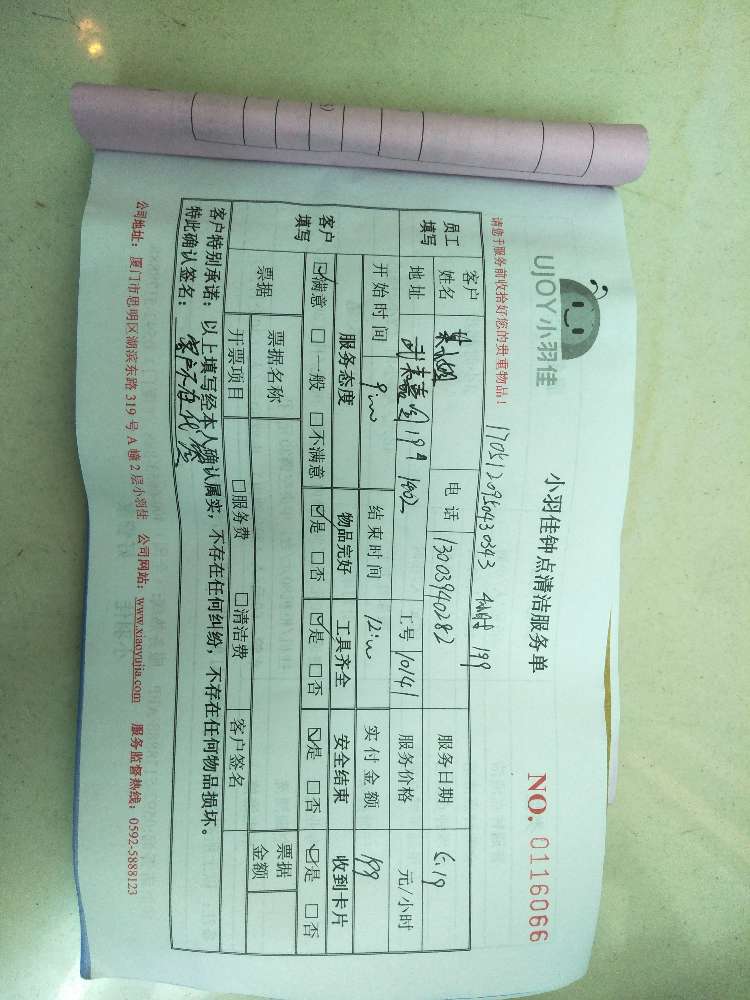 UJOY小羽佳
小羽佳钟点清洁服务单
NO. 0116066
请您于服务前收拾好您的贵重物品！
员工填写 客户姓名 电话 13003940282 服务日期 6.19
地址 19 1402 工号 10141 服务价格 元/小时
开始时间 9:00 结束时间 12:00 实付金额 199
客户填写 服务态度 物品完好 工具齐全 安全结束 收到卡片
☑满意 □一般 □不满意 ☑是 □否 ☑是 □否 ☑是 □否 ☑是 □否
票据 票据名称 票据金额
开票项目 □服务费 □清洁费 客户签名
客户特别承诺：以上填写经本人确认属实，不存在任何纠纷，不存在任何物品损坏。
特此确认签名：客户不在代签
公司地址：厦门市思明区湖滨东路319号A幢2层小羽佳 公司网站：www.xiaoyujia.com 服务监督热线：0592-5888123